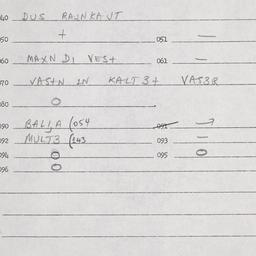 040 DUS RAINKAUT
050 + 051 —
060 MAXN DI VEST 061 —
070 VASTN IN KALT 3+ VATS3R
080 O
090 BALJA (054 091 →
092 MULT3 (143 093 —
094 O 095 O
096 O